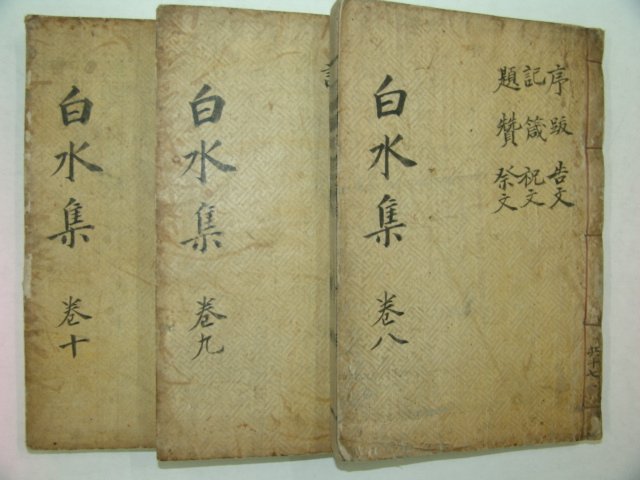 白水集 卷十
白水集 卷九
白水集 卷八
序 跋 告文
記 箴 祝文
題 贊 祭文